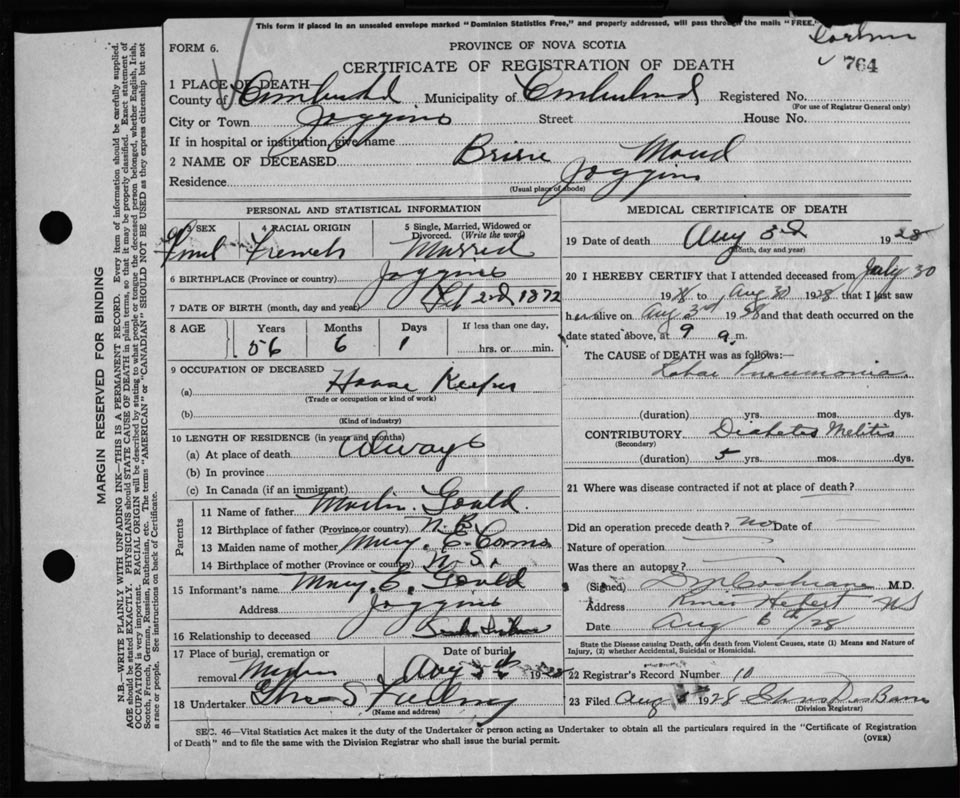 This form if placed in an unsealed envelope marked "Dominion Statistics Free," and properly addressed, will pass through the mails "FREE."
FORM 6.
PROVINCE OF NOVA SCOTIA
CERTIFICATE OF REGISTRATION OF DEATH
764
1 PLACE OF DEATH
County of Cumberland Municipality of Cumberland Registered No.
(For use of Registrar General only)
City or Town Joggins Street House No.
If in hospital or institution, give name
2 NAME OF DECEASED Maud
Residence Joggins
(Usual place of abode)
PERSONAL AND STATISTICAL INFORMATION
3 SEX 4 RACIAL ORIGIN 5 Single, Married, Widowed or Divorced. (Write the word)
French Married
6 BIRTHPLACE (Province or country) Joggins
7 DATE OF BIRTH (month, day and year) 2nd 1872
8 AGE Years Months Days If less than one day,
56 6 1 hrs. or min.
9 OCCUPATION OF DECEASED
(a) House Keeper
(Trade or occupation or kind of work)
(b)
(Kind of industry)
10 LENGTH OF RESIDENCE (in years and months)
(a) At place of death Always
(b) In province
(c) In Canada (if an immigrant)
Parents
11 Name of father Gould
12 Birthplace of father (Province or country) N.B.
13 Maiden name of mother Mary E.
14 Birthplace of mother (Province or country) N.S.
15 Informant's name Mary E. Gould
Address Joggins
16 Relationship to deceased
17 Place of burial, cremation or removal Date of burial
Aug 19
18 Undertaker
(Name and address)
MEDICAL CERTIFICATE OF DEATH
19 Date of death Aug 3rd 1928
(Month, day and year)
20 I HEREBY CERTIFY that I attended deceased from July 30
1928 to Aug 30 1928 that I last saw
her alive on Aug 3rd 1928 and that death occurred on the
date stated above, at 9 a.m.
The CAUSE of DEATH was as follows:—
Lobar Pneumonia
(duration) yrs. mos. dys.
CONTRIBUTORY Diabetes Melitis
(Secondary)
(duration) 5 yrs. mos. dys.
21 Where was disease contracted if not at place of death?
Did an operation precede death? no Date of
Nature of operation
Was there an autopsy?
(Signed) Cochrane M.D.
Address River Hebert NS
Date Aug 6th/28
State the Disease causing Death, or in death from Violent Causes, state (1) Means and Nature of Injury, (2) whether Accidental, Suicidal or Homicidal.
22 Registrar's Record Number 10
23 Filed Aug 1928
(Division Registrar)
SEC. 46—Vital Statistics Act makes it the duty of the Undertaker or person acting as Undertaker to obtain all the particulars required in the "Certificate of Registration
of Death" and to file the same with the Division Registrar who shall issue the burial permit.
(OVER)
MARGIN RESERVED FOR BINDING
N.B.—WRITE PLAINLY WITH UNFADING INK—THIS IS A PERMANENT RECORD. Every item of information should be carefully supplied.
AGE should be stated EXACTLY. PHYSICIANS should STATE CAUSE OF DEATH in plain terms, so that it may be properly classified. Exact statement of
OCCUPATION is very important. RACIAL ORIGIN will be described by stating to what people or tongue the deceased person belonged, whether English, Irish,
Scotch, French, German, Russian, Ruthenian, etc. The terms "AMERICAN" or "CANADIAN" SHOULD NOT BE USED as they express citizenship but not
a race or people. See instructions on back of Certificate.